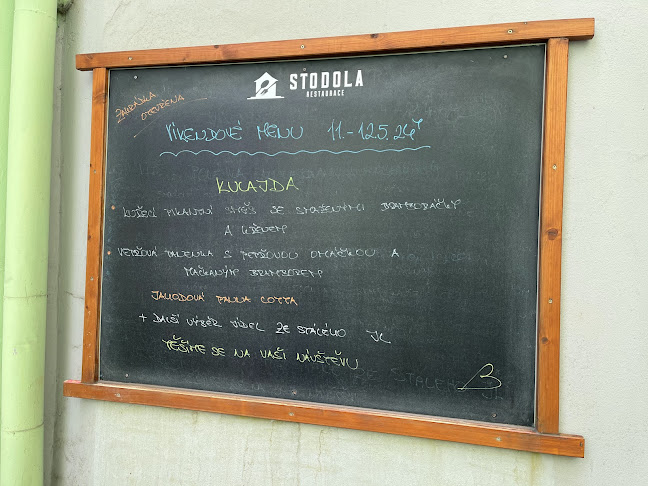 STODOLA
RESTAURACE
ZAHRÁDKA
OTEVŘENA
VÍKENDOVÉ MENU 11.-12.5.24
KULAJDA
KUŘECÍ PIKANTNÍ SMĚS SE SMAŽENÝMI BRAMBORÁČKY
A KŘENEM
VEPŘOVÁ PANENKA S PEPŘOVOU OMÁČKOU A
MAČKANÝM BRAMBOREM
JAHODOVÁ PANNA COTTA
+ DALŠÍ VÝBĚR JÍDEL ZE STÁLÉHO JL
TĚŠÍME SE NA VAŠI NÁVŠTĚVU